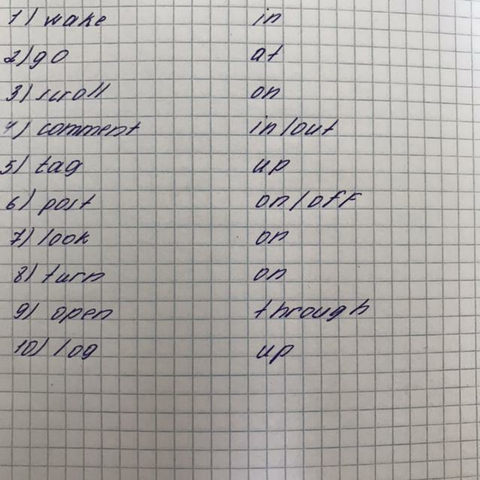 1) wake in
2) go at
3) scroll on
4) comment in/out
5) tag up
6) post on/off
7) look on
8) turn on
9) open through
10) log up